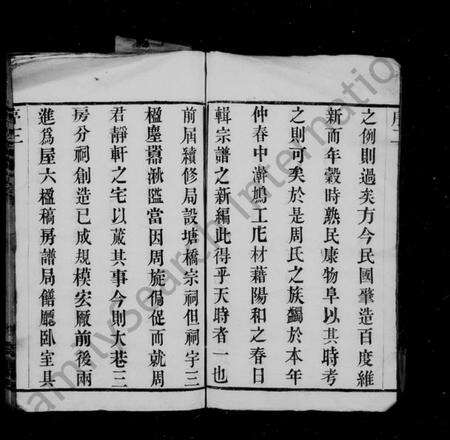 之例則過矣方今民國肇造百度維
新而年穀時熟民康物阜以其時考
之則可矣於是周氏之族蠲於本年
仲春中澣鳩工庀材藉陽和之春日
輯宗譜之新編此得乎天時者一也
前屆續修局設塘橋宗祠但祠宇三
楹塵囂湫隘當因周旋傷促而就周
君靜軒之宅以蕆其事今則大巷三
房分祠創造已成規模宏厰前後兩
進爲屋六楹稿房譜局儀廳臥室具
序三
FamilySearch International